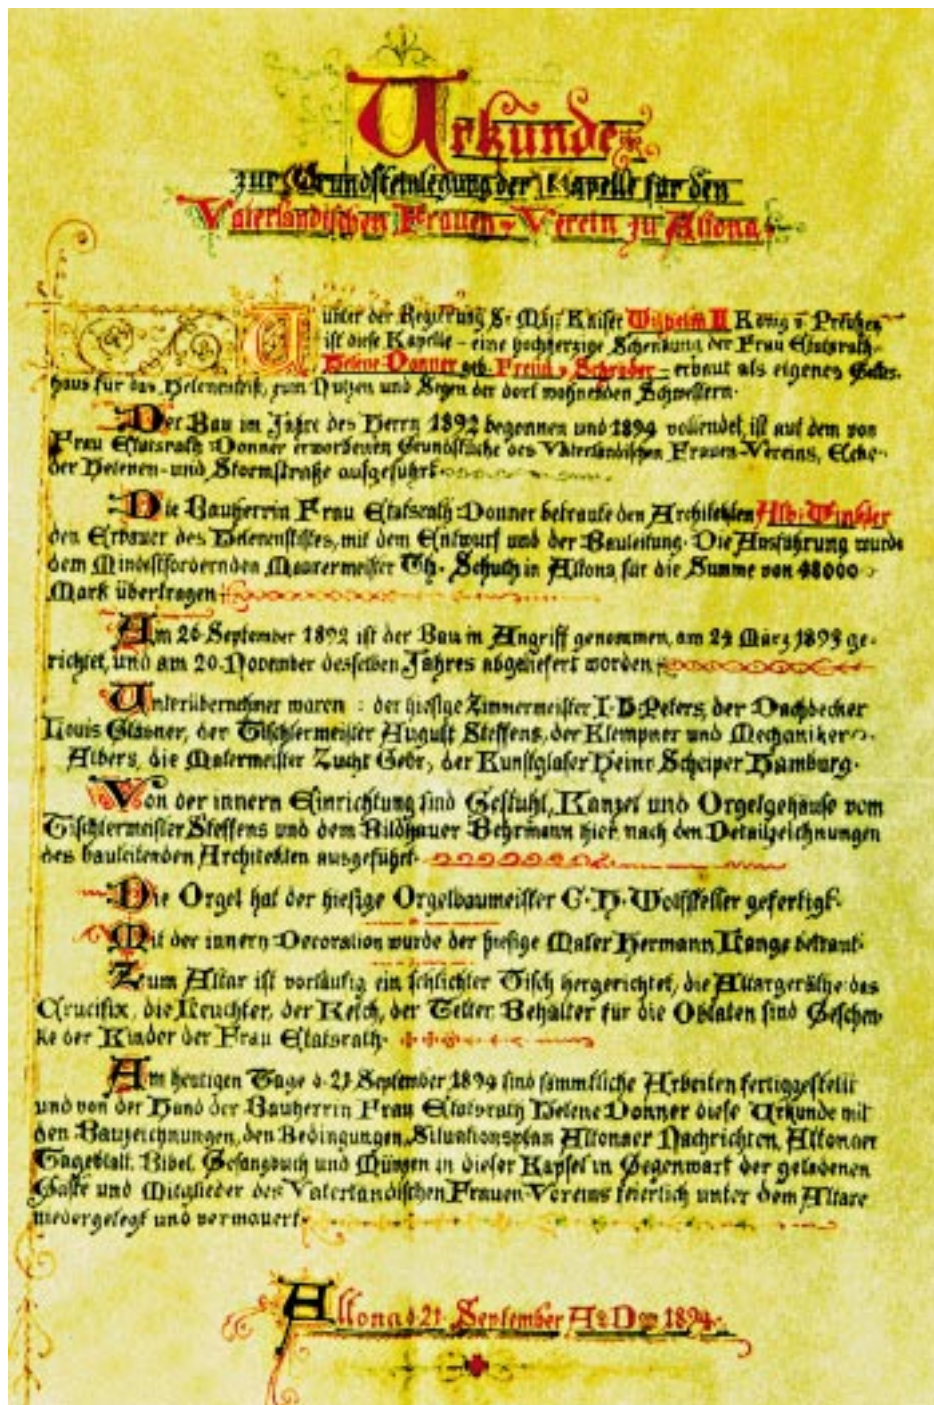 Urkunde
zur Grundsteinlegung der Kapelle für den
Vaterländischen Frauen-Verein zu Altona
Unter der Regierung Sr. Maj: Kaiser Wilhelm II König v. Preußen
ist diese Kapelle – eine hochherzige Schenkung der Frau Etatsrath
Helene Donner geb. Freiin v. Schröder – erbaut als eigenes Gottes-
haus für das Helenenstift, zum Nutzen und Segen der dort wohnenden Schwestern.
Der Bau im Jahre des Herrn 1892 begonnen und 1894 vollendet, ist auf dem von
Frau Etatsrath Donner erworbenen Grundstücke des Vaterländischen Frauen-Vereins, Ecke
der Helenen- und Stormstraße ausgeführt.
Die Bauherrin Frau Etatsrath Donner betraute den Architekten Alb: Winkler
den Erbauer des Helenenstiftes, mit dem Entwurf und der Bauleitung. Die Ausführung wurde
dem Mindestfordernden Maurermeister Th. Schuth in Altona für die Summe von 48000
Mark übertragen
Am 26 September 1892 ist der Bau in Angriff genommen, am 24 März 1893 ge-
richtet, und am 20. November desselben Jahres abgeliefert worden
Unterübernehmer waren : der hiesige Zimmermeister I. D. Peters, der Dachdecker
Louis Glasner, der Tischlermeister August Steffens, der Klempner und Mechaniker
Albers, die Malermeister Zucht Gebr., der Kunstglaser Heinr Scheiper Hamburg.
Von der innern Einrichtung sind Gestuhl, Kanzel und Orgelgehäuse vom
Tischlermeister Steffens und dem Bildhauer Behrmann hier nach den Detailzeichnungen
des bauleitenden Architekten ausgeführt.
Die Orgel hat der hiesige Orgelbaumeister C. H. Wolfsteller gefertigt.
Mit der innern Decoration wurde der hiesige Maler Hermann Lange betraut.
Zum Altar ist vorläufig ein schlichter Tisch hergerichtet, die Altargeräthe das
Crucifix, die Leuchter, der Kelch, der Teller, Behälter für die Oblaten sind Geschen-
ke der Kinder der Frau Etatsrath.
Am heutigen Tage d. 21 September 1894 sind sämmtliche Arbeiten fertiggestellt
und von der Hand der Bauherrin Frau Etatsrath Helene Donner diese Urkunde mit
den Bauzeichnungen, den Bedingungen, Situationsplan Altonaer Nachrichten, Altonaer
Tageblatt, Bibel, Gesangbuch und Münzen in dieser Kapsel in Gegenwart der geladenen
Gäste und Mitglieder des Vaterländischen Frauen-Vereins feierlich unter dem Altare
niedergelegt und vermauert.
Altona d. 21. September Ao Dom 1894.